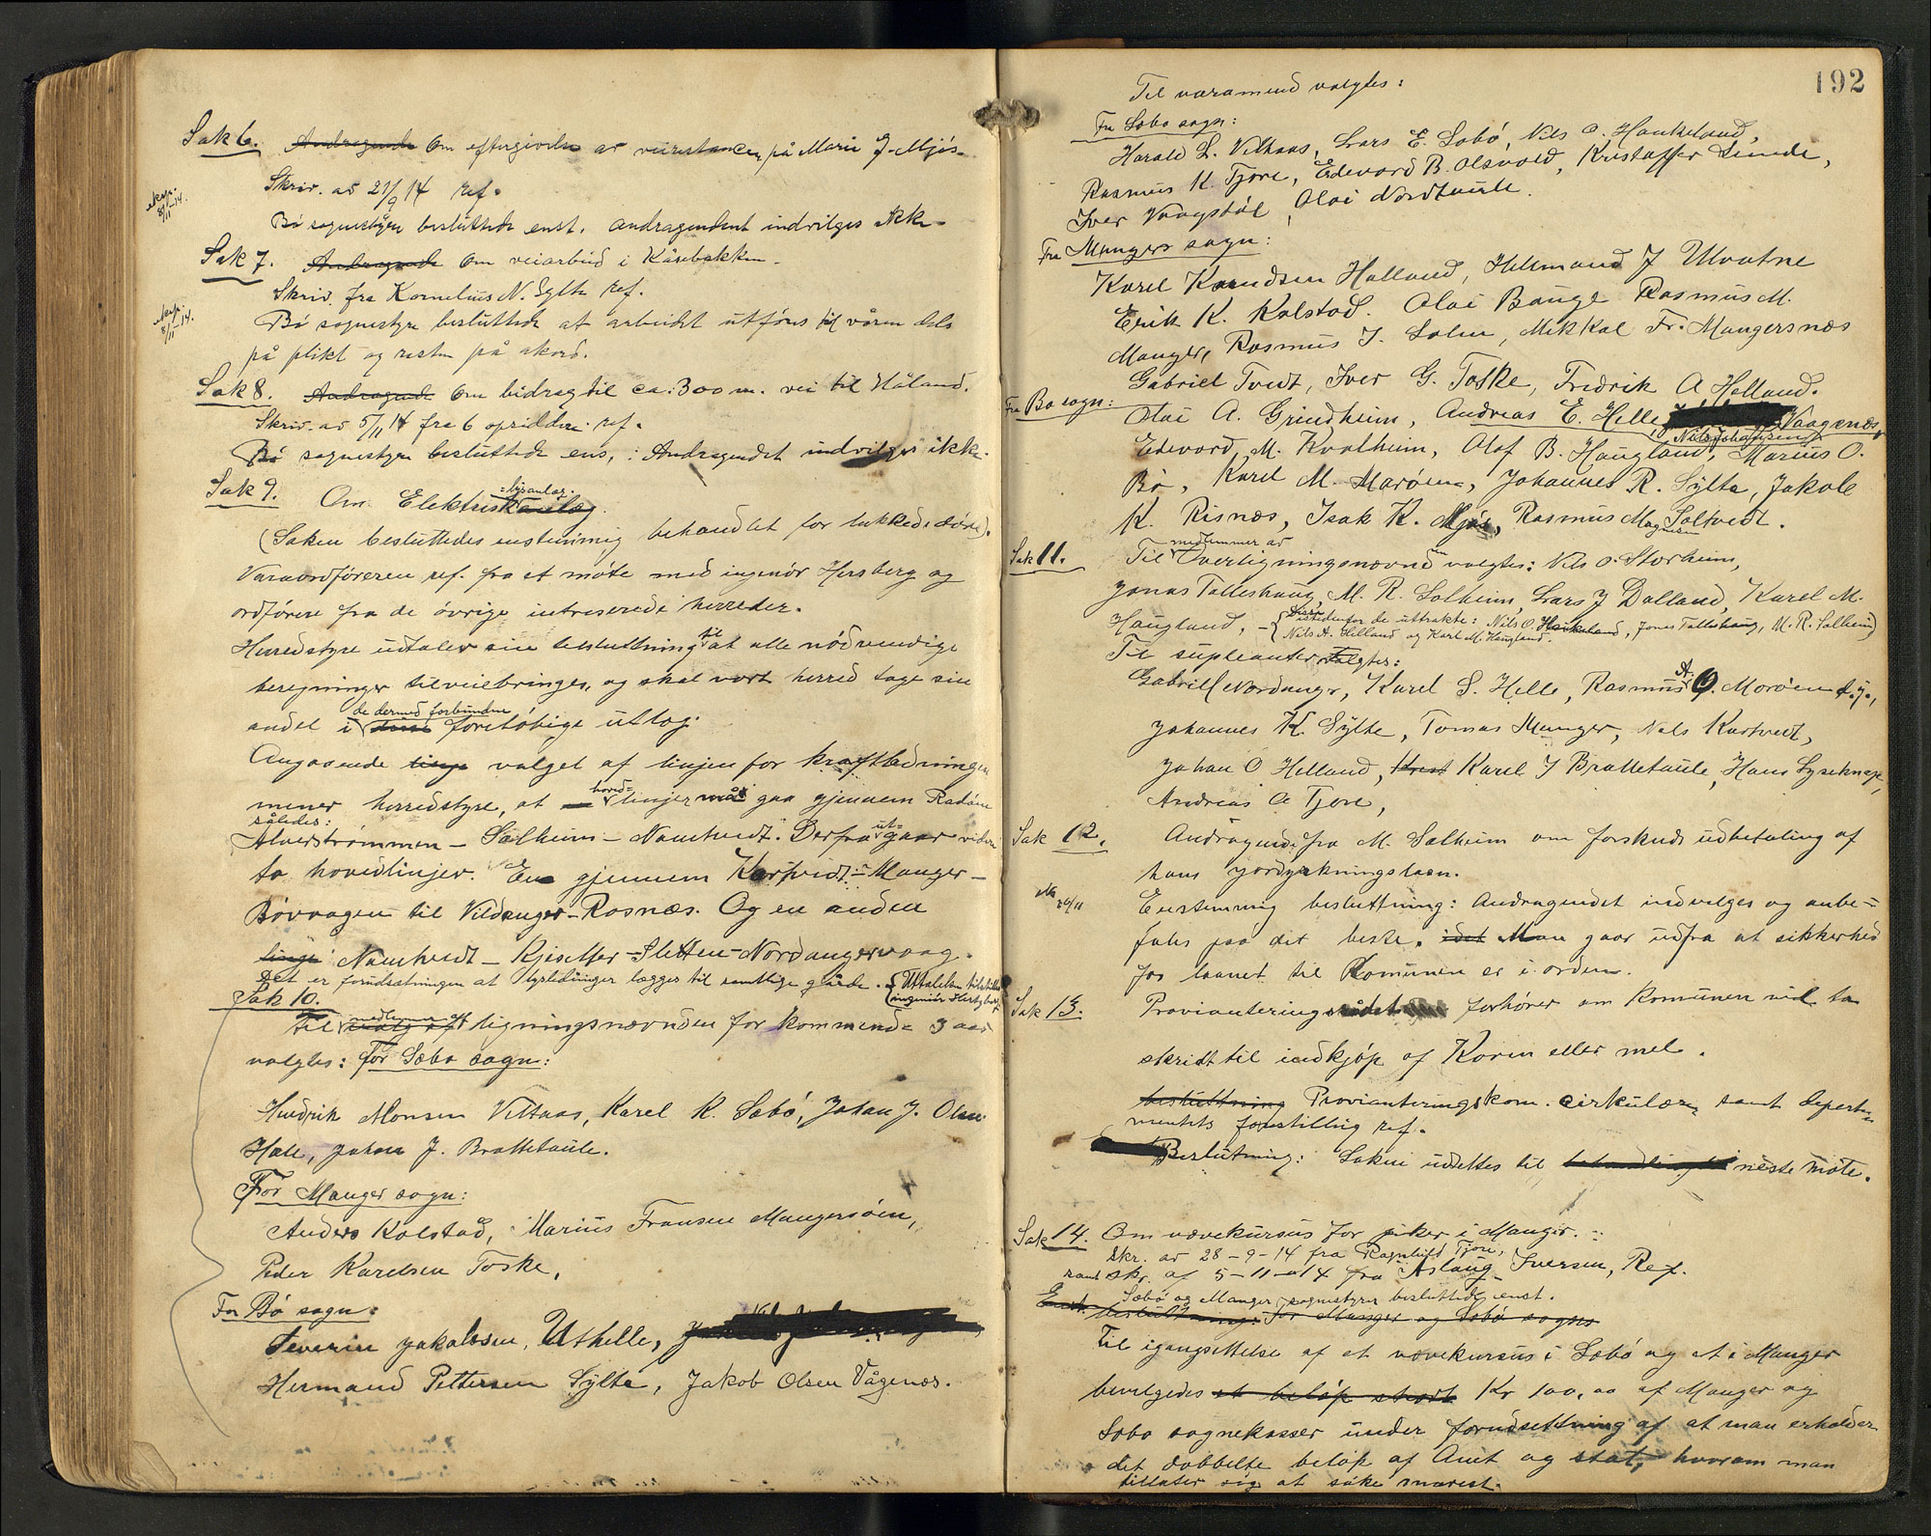 Sak 6. Andragende Om eftergivelse av på Marie J. Mjøs.
Skriv. av 21/9 14 ref.
8/11-14.
Bø sognestyre besluttede enst. andragendet indvilges ikke.
Sak 7. Andragende Om veiarbeid i Kårebakken.
Skriv. fra Kornelius N. Sylte ref.
8/11-14.
Bø sognestyre besluttede at arbeidet utføres til våren dels
på plikt og resten på akord.
Sak 8. Andragende Om bidrag til ca: 300 m. vei til Håland.
Skriv. av 5/11 14 fra 6 opsiddere ref.
Bø sognestyre besluttede ens,: Andragendet indvilges ikke.
Sak 9. Om Elektrisk anlæg. lysanlæg.
(Saken besluttedes enstemmig behandlet for lukkede døre).
Varaordføreren ref. fra et møte med ingeniør Hersberg og
ordførere fra de øvrige intreserede herreder.
Herredstyre udtaler sin beslutning til at alle nødvendige
beregninger tilveiebringes, og skal vort herred tage sin
andel i de dermed forbundne foreløbige utlæg.
Angaaende linje valget af linjen for kraftledningen
mener herredstyre, at hoved- linjer må gaa gjennem Radøen
således:
Alverstrømmen – Sælheim – Namtvedt. Derfra ut- gaar videre
to hovedlinjer. En gjennem Kartveidt – Manger –
Bøvaagen til Vildanger – Rosnæs. Og en anden
linje Namtvedt – Kjiselfar – Sletten – Nordangervaag.
Det er forudsætningen at lysledninger lægges til samtlige gårde. Uttalelsen tilstilles
ingeniør Hersberg
Sak 10.
Til valg af medlemmer af ligningsnævnden for kommende 3 aar
valgtes: For Sæbø sogn:
Hendrik Monsen Viltaas, Karel K. Sæbø, Johan J. Olsen
Hole, Johan J. Brattetaule.
For Manger sogn:
Anders Kolstad, Marius Fransen Mangersøien,
Peder Karelsen Toske,
For Bø sogn:
Severin Jakobsen Uthelle,
Hermand Pettersen Sylte, Jakob Olsen Vågenæs.
192
Til varamend valgtes:
Fra Sæbø sogn:
Harald L. Villaas, Lars E. Sæbø, Nils O. Haukeland,
Rasmus K. Tjore, Edevard B. Olsvold, Kristoffer Simde,
Iver Vaagstøl, Olai Nordtaule.
Fra Manger sogn:
Karel Knudsen Halland, Hilmand J Ulvatne
Erik K. Kolstad. Olai Bauge Rasmus M.
Manger, Rasmus J. Solem, Mikkal Fr. Mangersnæs
Gabriel Tvedt, Iver G. Toske, Fredrik A Helland.
Fra Bø sogn: Olai A. Grindheim, Andreas E. Helle, Nils Johansen Vaagenæs,
Edevard M. Kvalheim, Olaf B. Haugland, Marius O.
Bø, Karel M. Marøen, Johannes R. Sylte, Jakob
K. Risnæs, Isak K. Mjøs, Rasmus Magnisen Soltvedt.
Sak 11. Til medlemmer av Overligningsnævnden valgtes: Nils O. Storheim,
Jonas Talleshaug, M. R. Solheim, Lars J Dalland, Karel M.
Haugland, – de uttrakte: Nils O. Haukeland, Jonas Talleshaug, M. R. Solheim
Nils A. Helland og Karl M. Haugland.
Til supleanter valgtes:
Gabriel Nordanger, Karel S. Helle, Rasmus A. O. Marøen d.y.,
Johannes K. Sylte, Tomas Manger, Nils Kartvedt,
Johan O Helland, Karel J Brattetaule, Hans Lyseknap,
Andreas A Tjore,
Sak 12. Andragende fra M. Sælheim om forskuds udbetaling af
hans jorddyrkningslaan.
20/11 Enstemmig beslutning: Andragendet indvelges og anbe-
fales paa det beste. idet Man gaar udfra at sikkerhed
for laanet til Komunen er i orden.
Sak 13. Provianteringsrådet forhører om komunen vil ta
skridt til indkjøp af Korn eller mel.
beslutning Provianteringskom. cirkulære samt departe-
mentets forestilling ref.
Beslutning: Saken udsettes til behandling neste møte.
Sak 14. Om vævekursus for piker i Manger.
Skr. av 28-9-14 fra Ragnhild Tjore,
samt skr. af 5-11-14 fra Aslaug Iversen, Ref.
Sæbø og Manger sognestyrer besluttede enst.
Enst. beslutning: For Manger og Sæbø sogns
Til igangsettelse af et vævekursus i Sæbø og et i Manger
bevilgedes et beløp stort Kr 100,00 af Manger og
Sæbø sognekasser under forudsetning af at man erholder
det dobbelte beløp af Amt og stat, hvorom man
tillater sig at søke snarest.